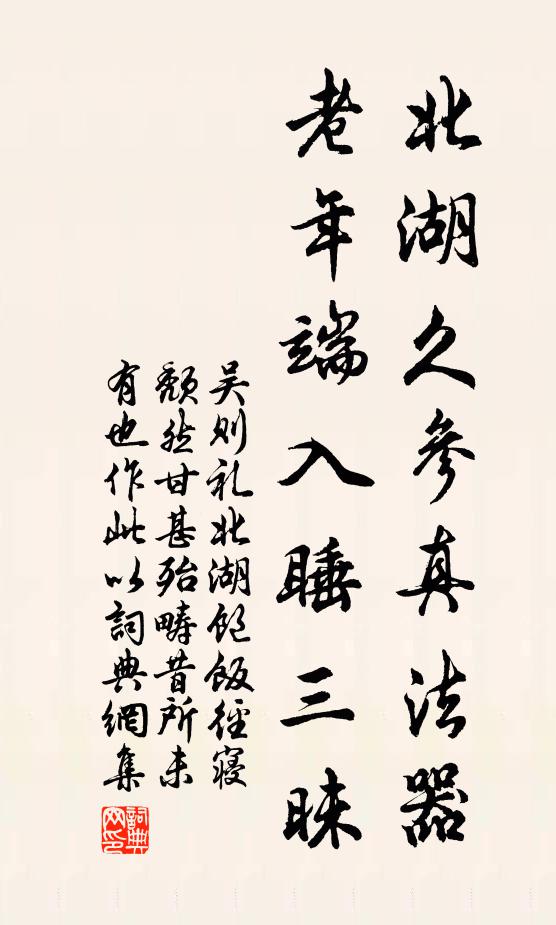 北湖久參真法器
老年端入睡三昧
吴则礼北湖飽飯徑寝
颓然甘甚殆畴昔所未
有也作此以詞典網集
詞典网印